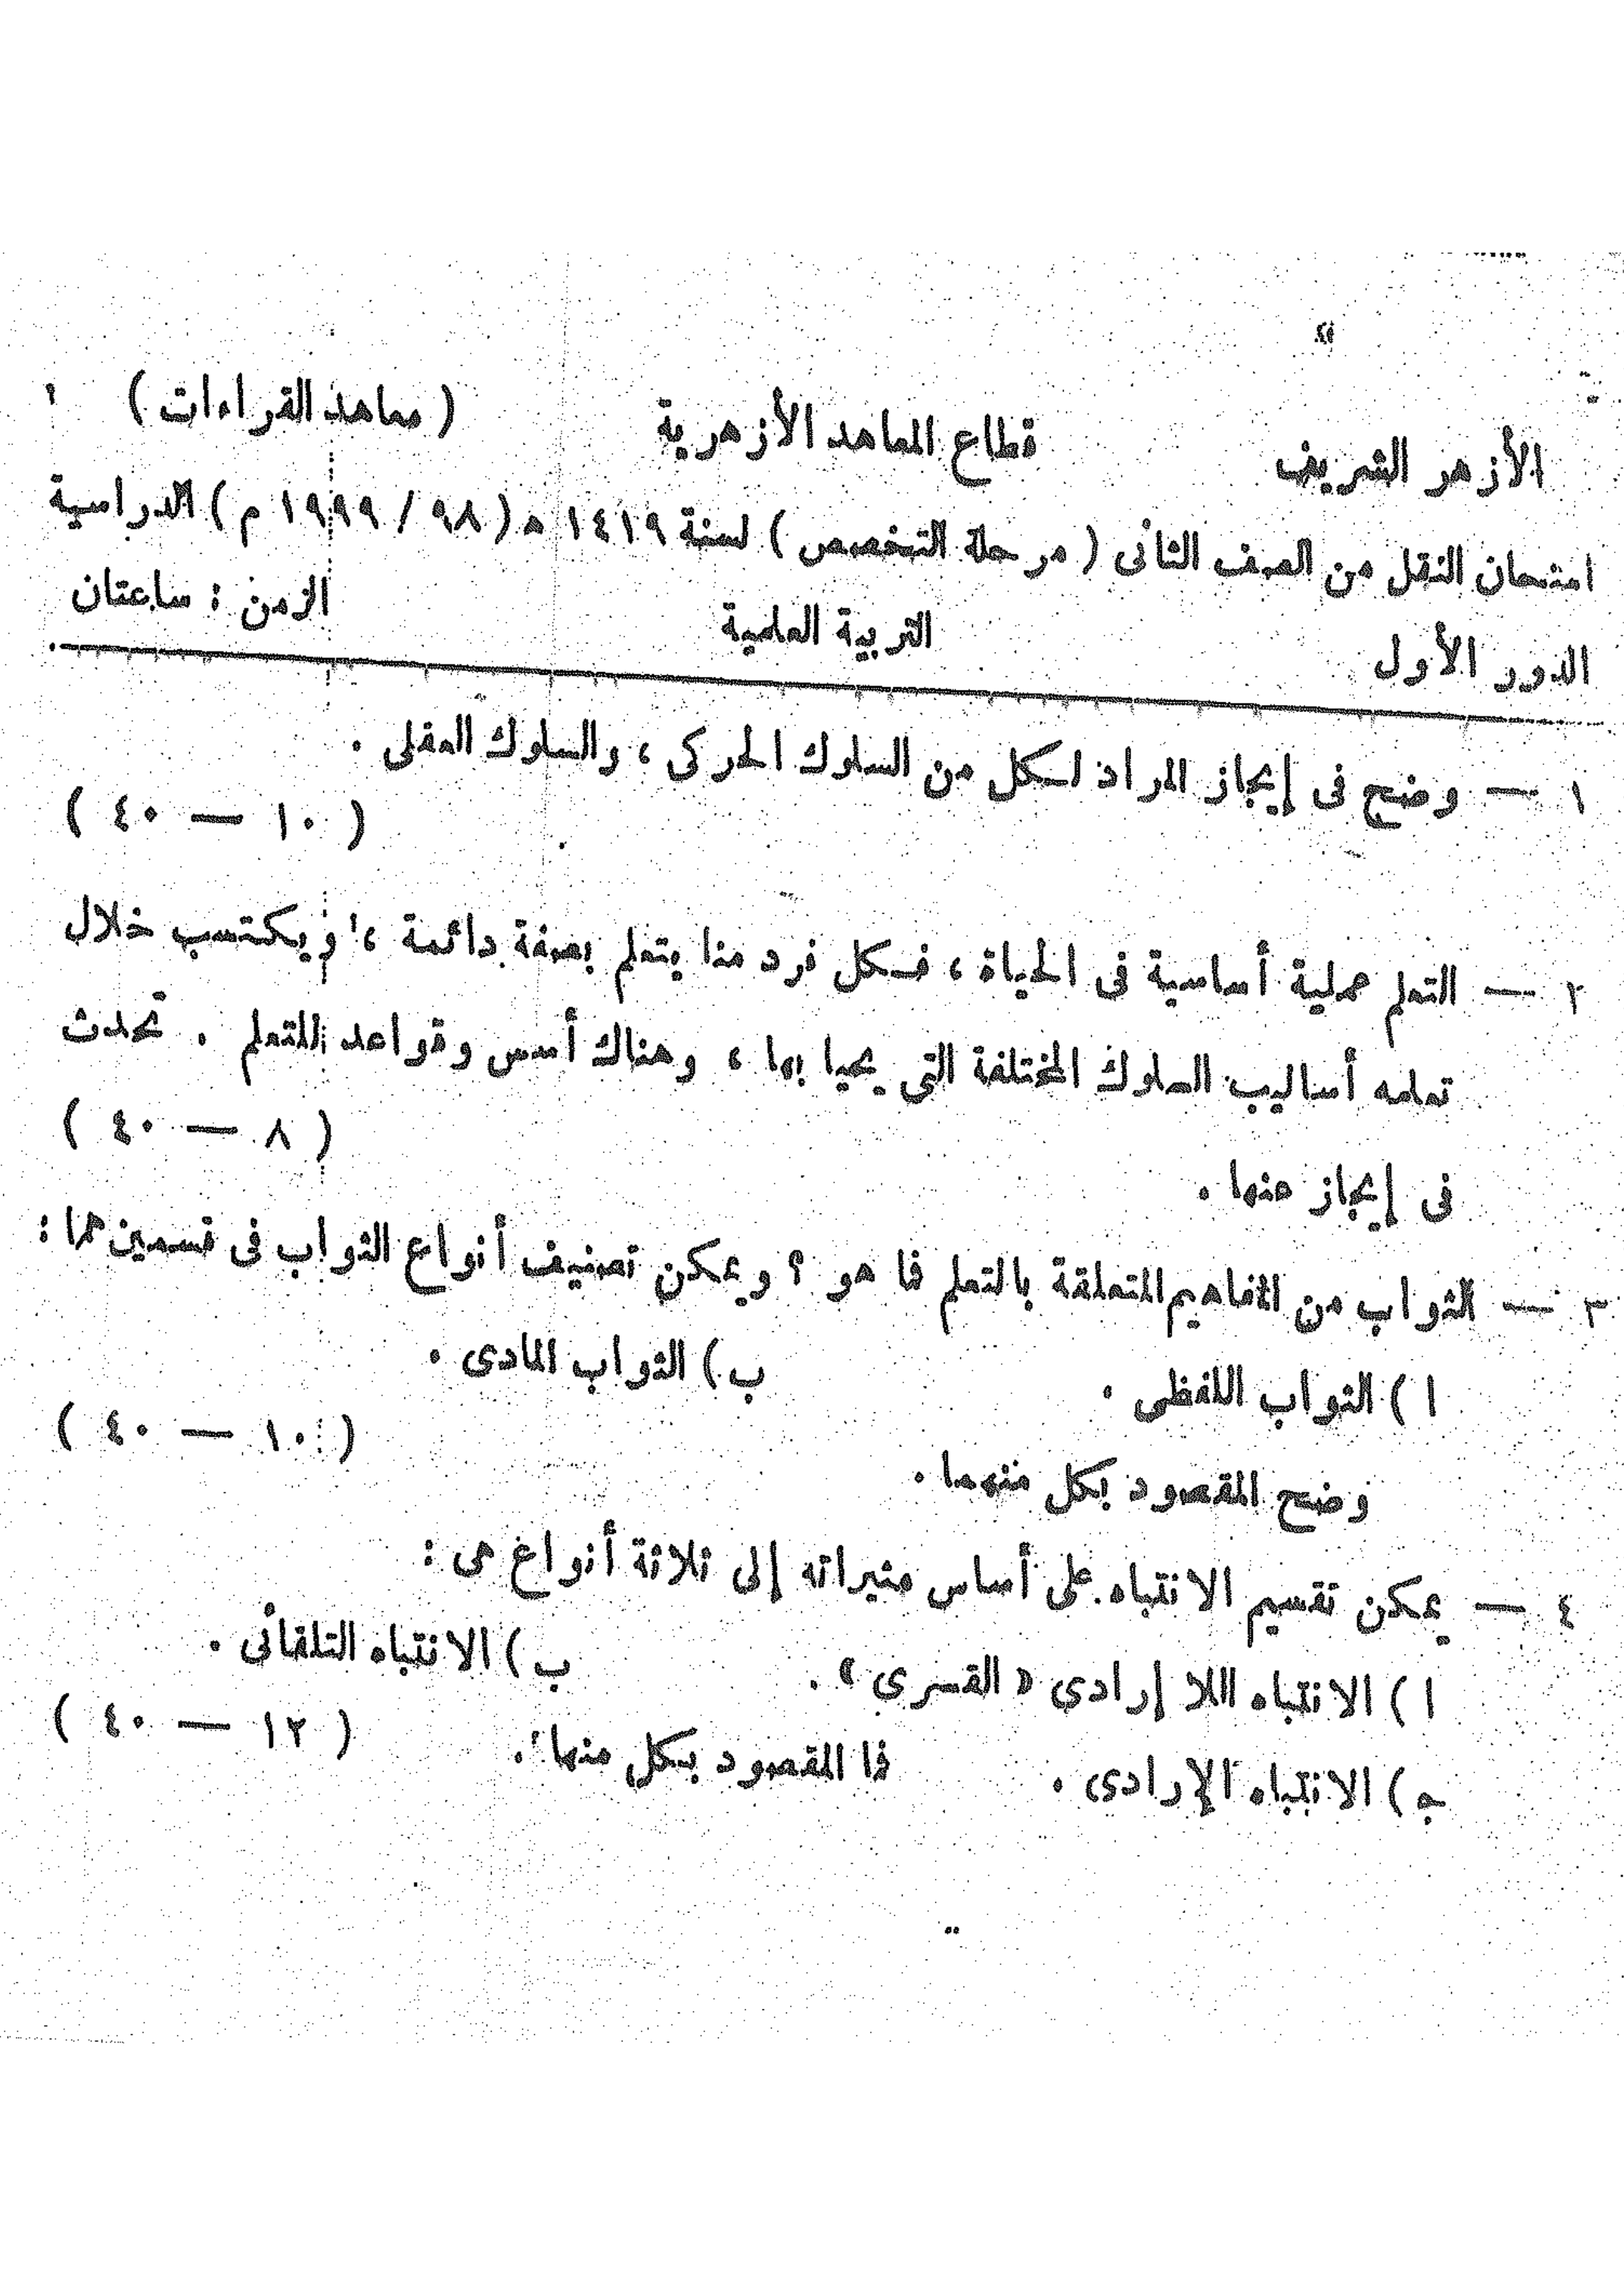 الأزهر الشريف قطاع المعاهد الأزهرية ( معاهد القراءات )
امتحان النقل من الصف الثانى ( مرحلة التخصص ) لسنة ١٤١٩ ه ( ٩٨ / ١٩٩٩ م ) الدراسية
الدور الأول التربية العلمية الزمن : ساعتان
١ — وضح فى إيجاز المراد لكل من السلوك الحركى ، والسلوك العقلى .
( ١٠ — ٤٠ )
٢ — التعلم عملية أساسية فى الحياة ، فكل فرد منا يتعلم بصفة دائمة ، ويكتسب خلال
تعلمه أساليب السلوك المختلفة التى يحيا بها ، وهناك أسس وقواعد للتعلم . تحدث
فى إيجاز عنها . ( ٨ — ٤٠ )
٣ — الثواب من المفاهيم المتعلقة بالتعلم فما هو ؟ ويمكن تصنيف أنواع الثواب فى قسمين هما :
ا ) الثواب اللفظى . ب ) الثواب المادى .
وضح المقصود بكل منهما . ( ١٠ — ٤٠ )
٤ — يمكن تقسيم الانتباه على أساس مثيراته إلى ثلاثة أنواع هى :
ا ) الانتباه اللا إرادى « القسرى » . ب ) الانتباه التلقائى .
ج ) الانتباه الإرادى . فما المقصود بكل منها . ( ١٢ — ٤٠ )